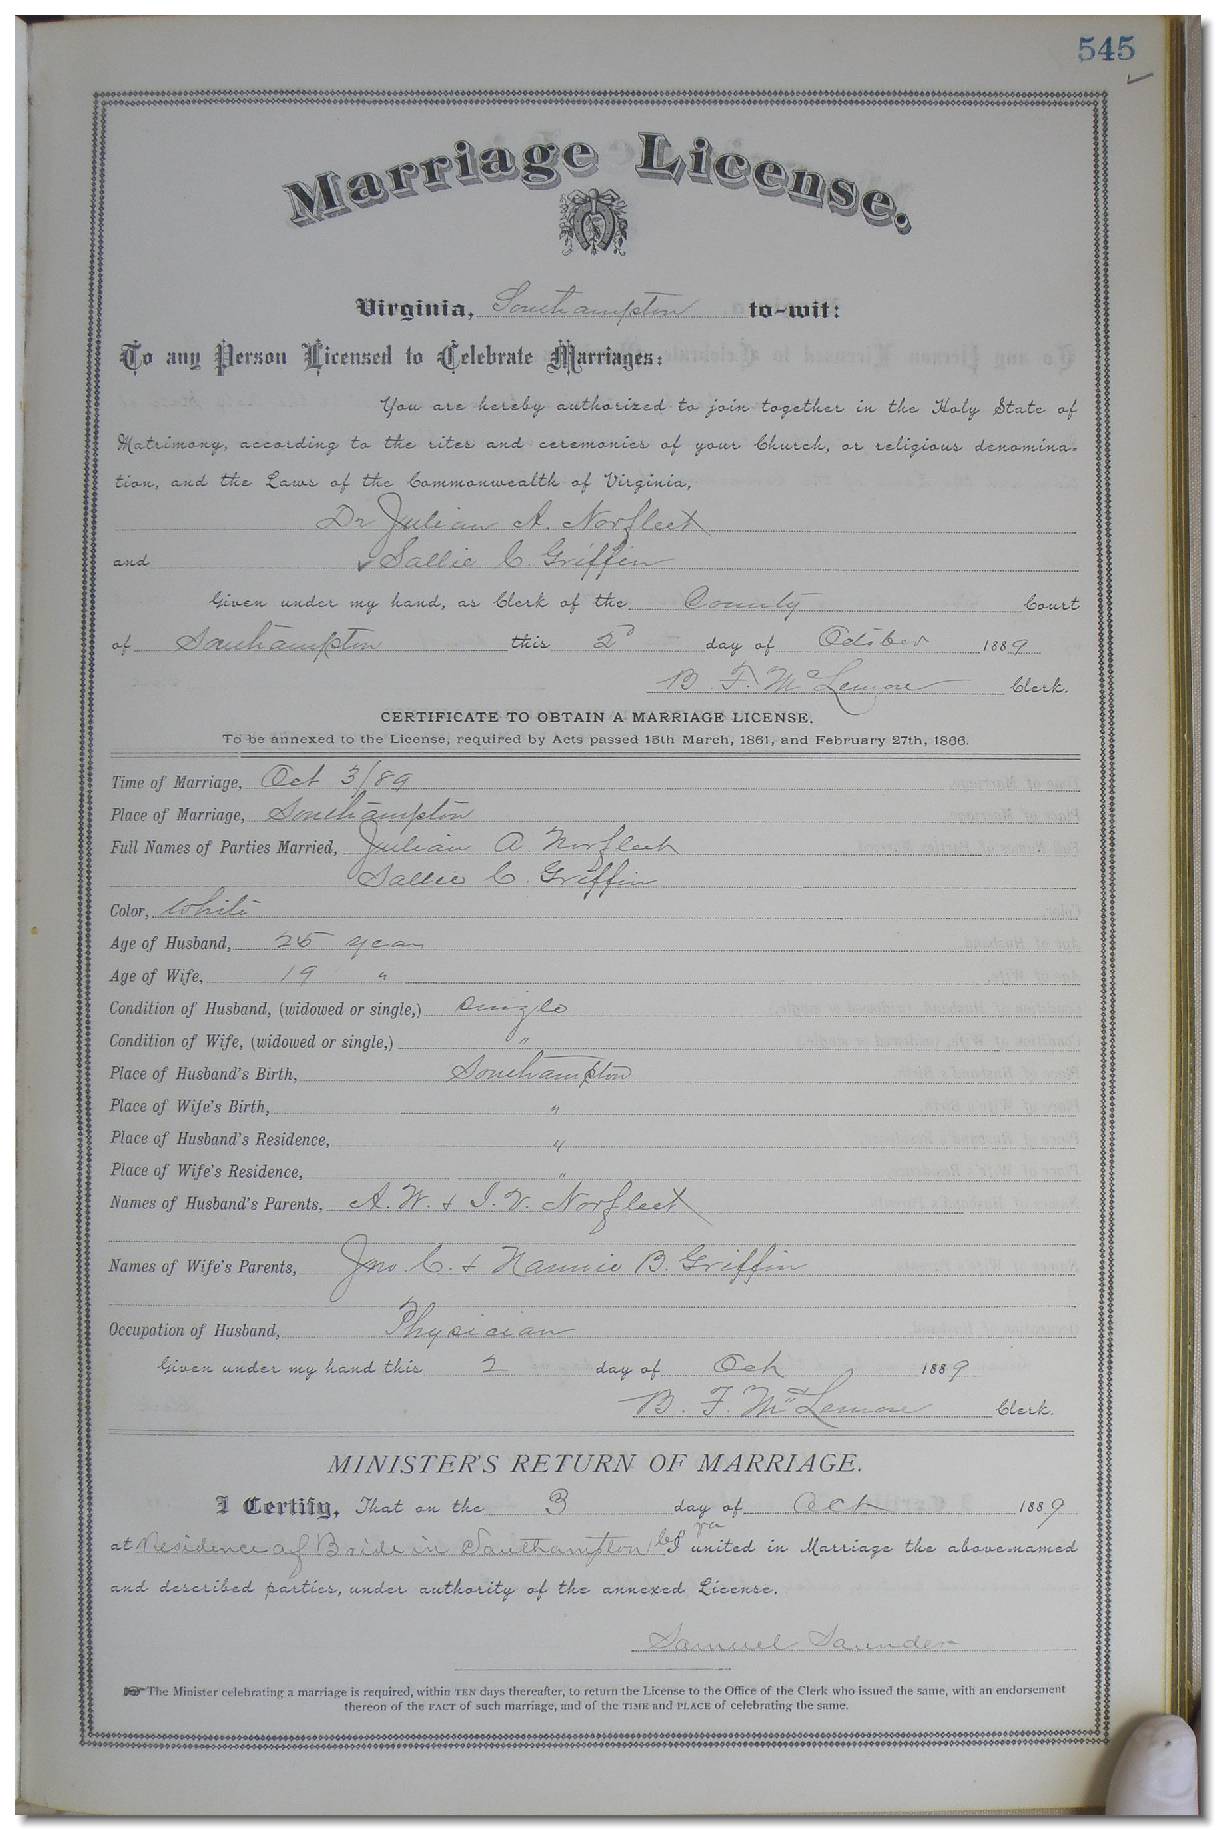 545
Marriage License.
Virginia, Southampton to-wit:
To any Person Licensed to Celebrate Marriages:
You are hereby authorized to join together in the Holy State of
Matrimony, according to the rites and ceremonies of your Church, or religious denomina-
tion, and the Laws of the Commonwealth of Virginia,
Dr Julian A. Norfleet
and Sallie C. Griffin
Given under my hand, as Clerk of the County Court
of Southampton this 2d day of October 1889
B F. McLemore Clerk.
CERTIFICATE TO OBTAIN A MARRIAGE LICENSE.
To be annexed to the License, required by Acts passed 15th March, 1861, and February 27th, 1866.
Time of Marriage, Oct 3/89
Place of Marriage, Southampton
Full Names of Parties Married, Julian A Norfleet
Sallie C. Griffin
Color, White
Age of Husband, 25 years
Age of Wife, 19 "
Condition of Husband, (widowed or single,) single
Condition of Wife, (widowed or single,) "
Place of Husband's Birth, Southampton
Place of Wife's Birth, "
Place of Husband's Residence, "
Place of Wife's Residence, "
Names of Husband's Parents, A. W. & I. V. Norfleet
Names of Wife's Parents, Jno. C. & Nannie B. Griffin
Occupation of Husband, Physician
Given under my hand this 2 day of Oct 1889
B. F. McLemore Clerk.
MINISTER'S RETURN OF MARRIAGE.
I Certify, That on the 3 day of Oct 1889
at Residence of Bride in Southampton Co va I united in Marriage the above-named
and described parties, under authority of the annexed License.
Samuel Saunders
☞ The Minister celebrating a marriage is required, within TEN days thereafter, to return the License to the Office of the Clerk who issued the same, with an endorsement
thereon of the FACT of such marriage, and of the TIME and PLACE of celebrating the same.